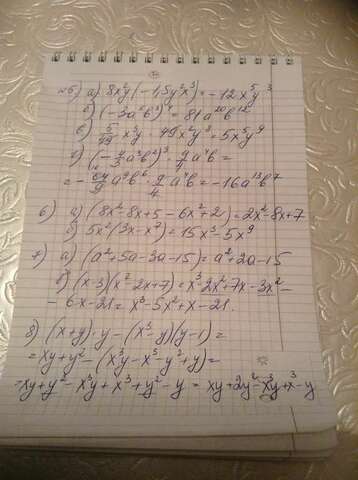 №5) а) 8x²y(-1,5y²x³)=-12x⁵y³
б) (-3a⁵b³)⁴=81a²⁰b¹²
в) 5/49 x³y · 49x²y⁸=5x⁵y⁹
г) (-4/3 a³b²)³ · 9/4 a⁴b=
=-64/9 a⁹b⁶ · 9/4 a⁴b=-16a¹³b⁷
6) а) (8x²-8x+5-6x²+2)=2x²-8x+7
б) 5x²(3x-x⁷)=15x³-5x⁹
7) а) (a²+5a-3a-15)=a²+2a-15
б) (x-3)(x²-2x+7)=x³-2x²+7x-3x²-
-6x-21=x³-5x²+x-21.
8) (x+y)·y-(x³-y)(y-1)=
=xy+y²-(x³y-x³-y²+y)=
=xy+y²-x³y+x³+y²-y=xy+2y²-x³y+x³-y